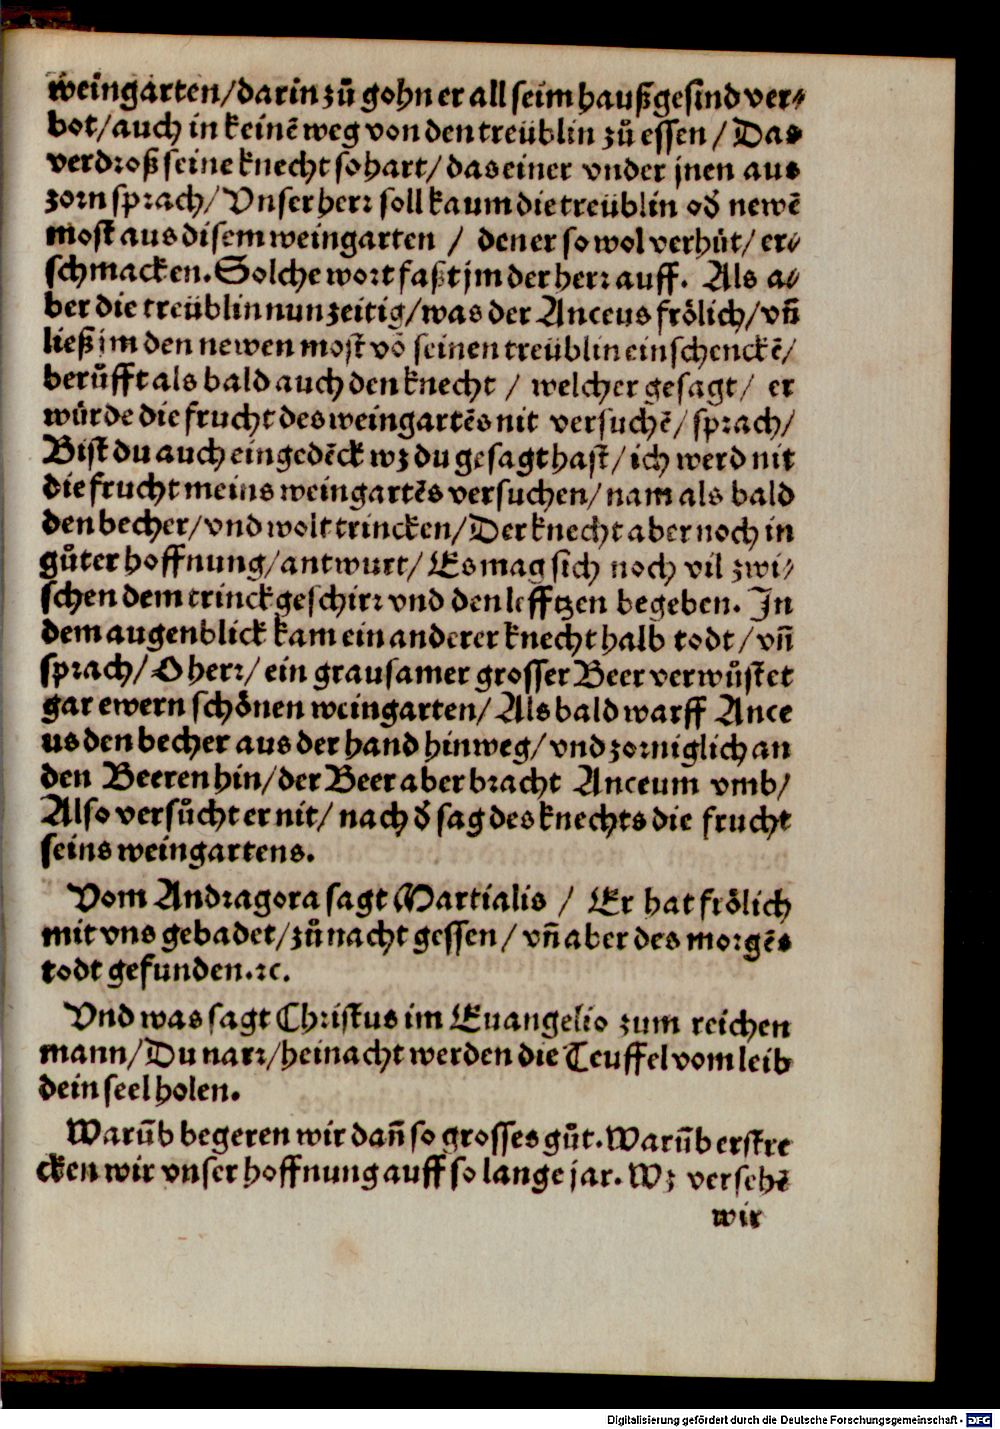 weingarten/darin zů gohn er all seim haußgesind ver⸗
bot/auch in keinē weg von den treüblin zů essen/Das
verdroß seine knecht so hart/das einer vnder jnen aus
zorn sprach/Vnser herr soll kaum die treüblin oď newē
most aus disem weingarten / den er so wol verhůt/er⸗
schmacken. Solche wort faßt jm der herr auff. Als a⸗
ber die treüblin nun zeitig/was der Anceus frölich/vñ
ließ jm den newen most vō seinen treüblin einschenckē/
berůfft als bald auch den knecht / welcher gesagt/ er
würde die frucht des weingartēs nit versuchē/sprach/
Bist du auch eingedēck wz du gesagt hast/ich werd nit
die frucht meins weingartēs versuchen/nam als bald
den becher/vnd wolt trincken/Der knecht aber noch in
gůter hoffnung/antwurt/Es mag sich noch vil zwi⸗
schen dem trinckgeschirr vnd den lefftzen begeben. In
dem augenblick kam ein anderer knecht halb todt/vñ
sprach/O herr/ein grausamer grosser Beer verwůstet
gar ewern schönen weingarten/Als bald warff Ance
us den becher aus der hand hinweg/vnd zorniglich an
den Beeren hin/der Beer aber bracht Anceum vmb/
Also versůcht er nit/nach ď sag des knechts die frucht
seins weingartens.
Vom Andragora sagt Martialis / Er hat frölich
mit vns gebadet/zů nacht gessen/vñ aber des morgēs
todt gefunden.ꝛc.
Vnd was sagt Christus im Euangelio zum reichen
mann/Du narr/heinacht werden die Teuffel vom leib
dein seel holen.
Warūb begeren wir dañ so grosses gůt. Warūb erstre
cken wir vnser hoffnung auff so lange jar. Wz versehē
wir
Digitalisierung gefördert durch die Deutsche Forschungsgemeinschaft - DFG